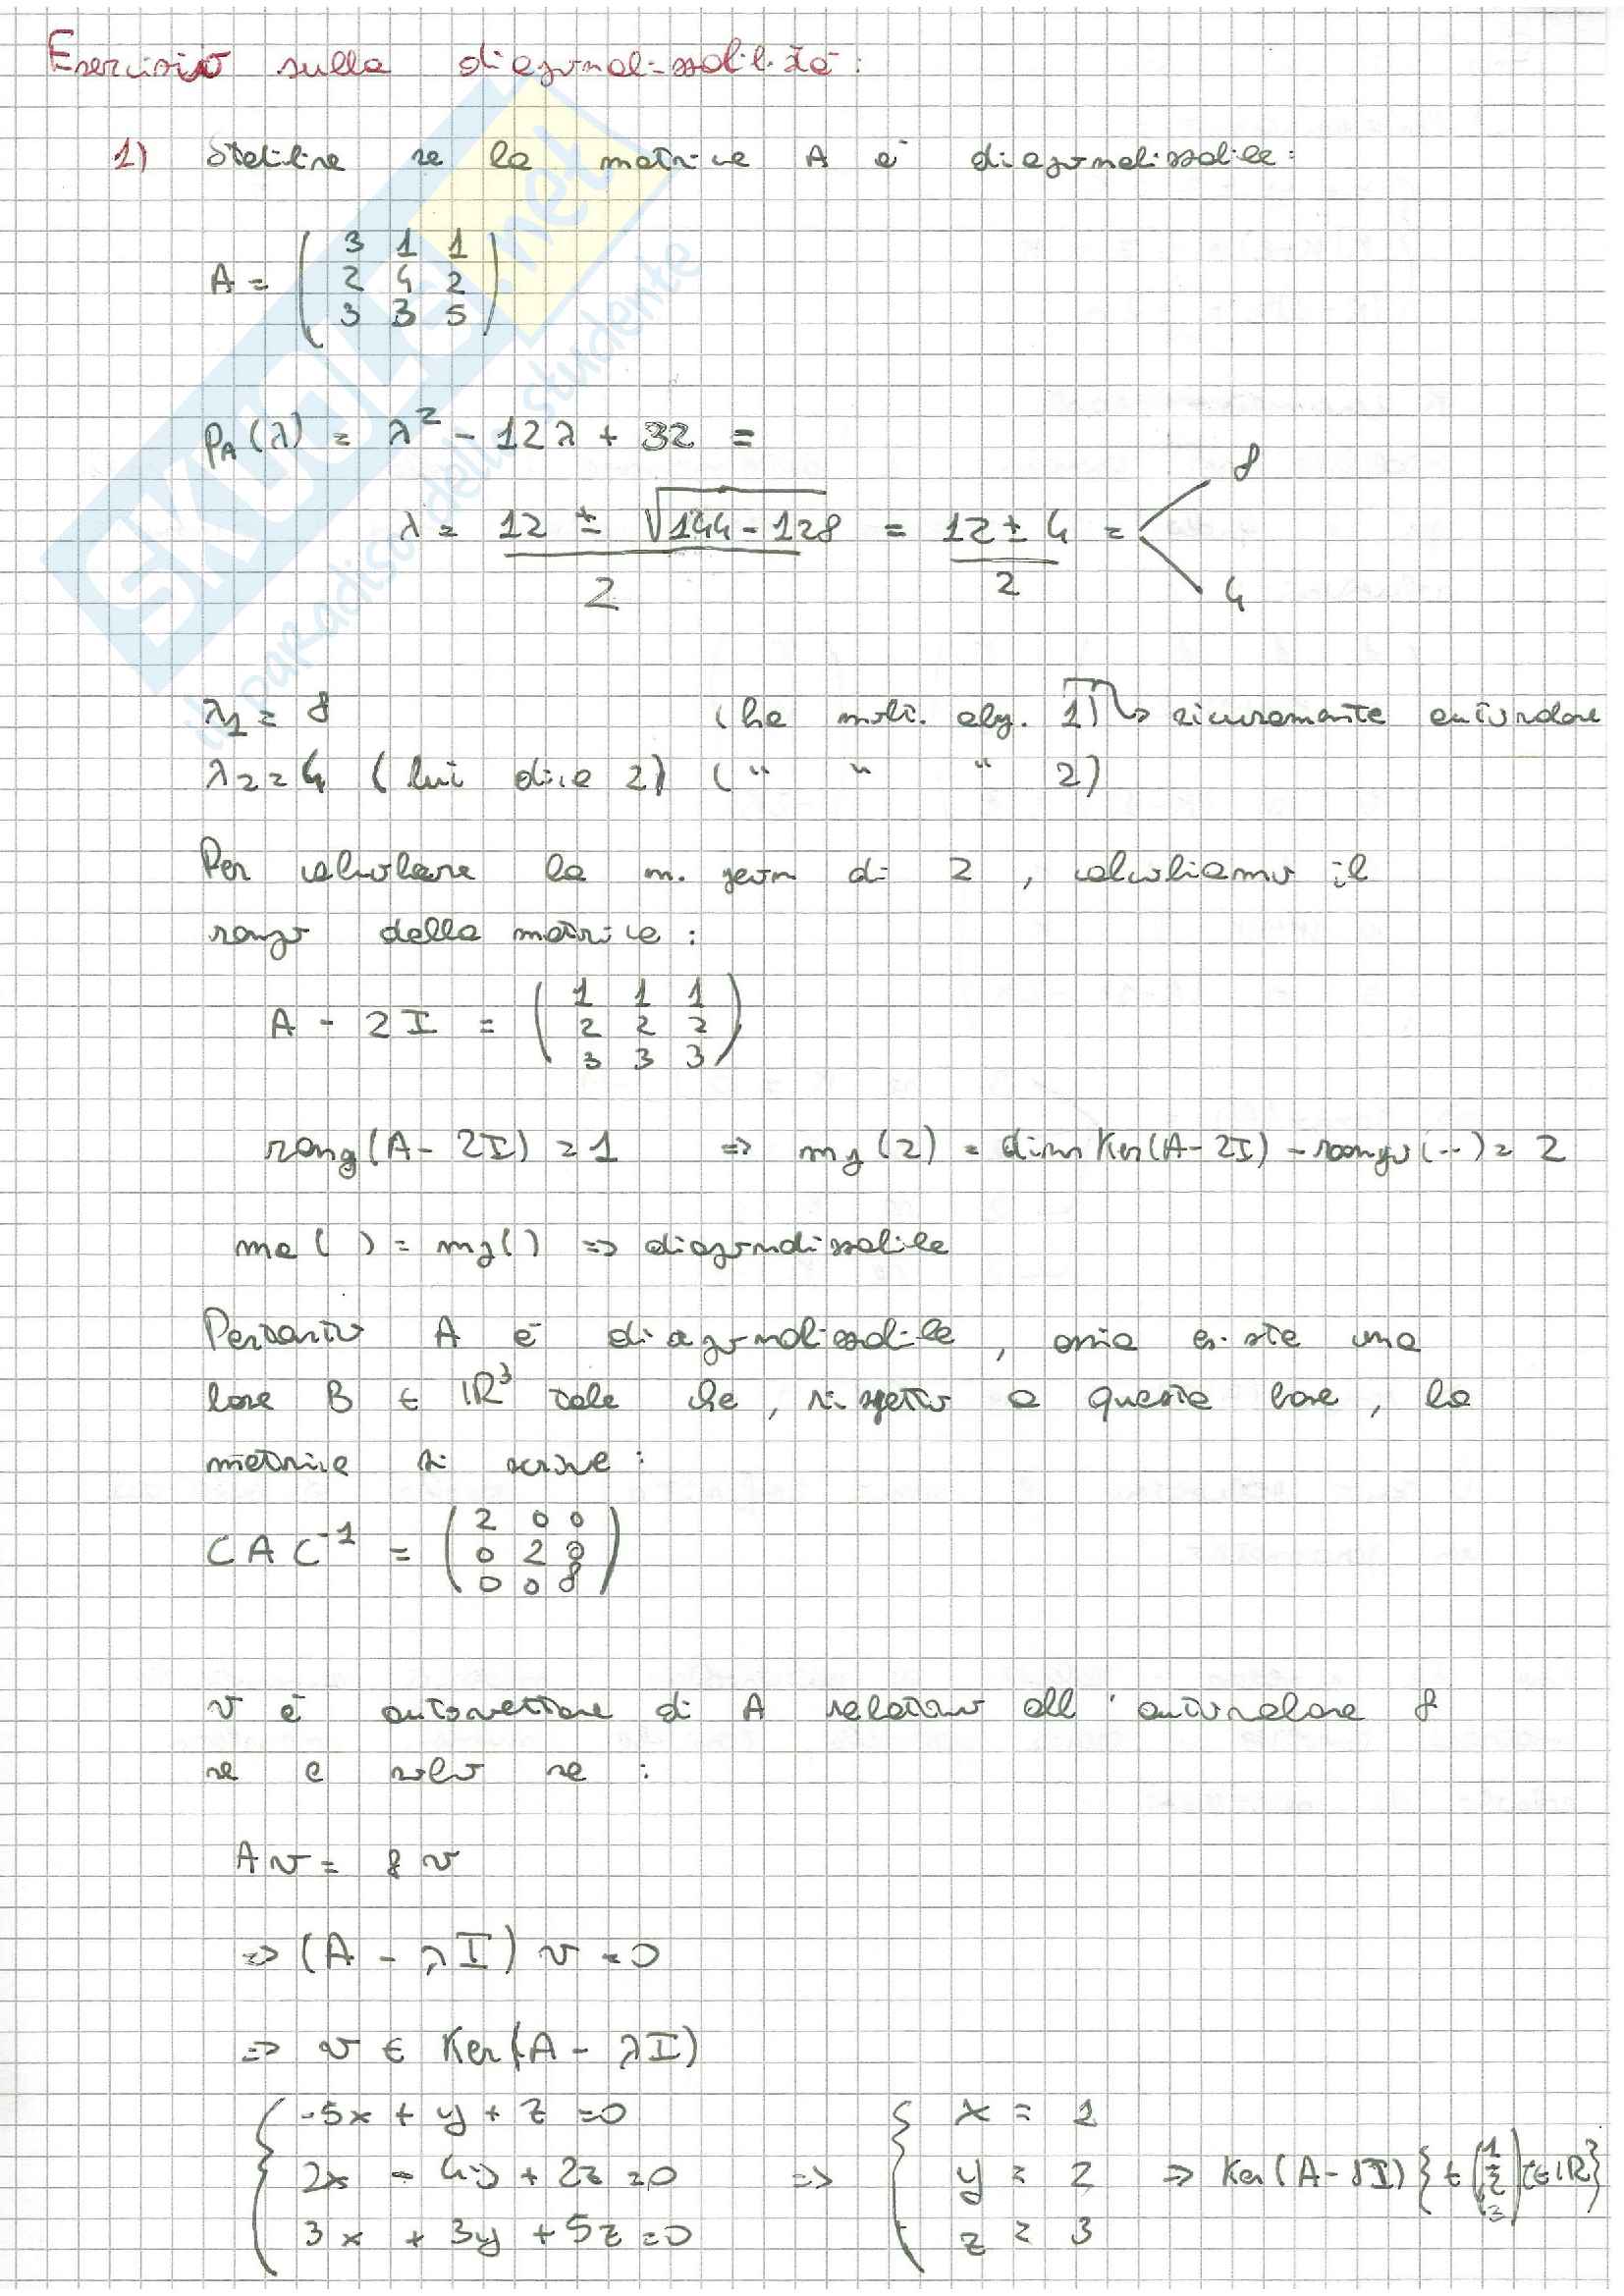 Esercizio sulla diagonalizzabilità:
1) Stabilire se la matrice A è diagonalizzabile:
A = ( 3 1 1
2 4 2
3 3 5 )
PA(λ) = λ² - 12λ + 32 =
λ = 12 ± √144-128 / 2 = 12 ± 4 / 2 = 8
4
λ1 = 8 (ha molt. alg. 1) → sicuramente autovalore
λ2 = 4 (lui dice 2) (" " " 2)
Per calcolare la m. geom di 2, calcoliamo il
rango della matrice:
A - 2I = ( 1 1 1
2 2 2
3 3 3 )
rang(A - 2I) = 1 => mg(2) = dim Ker(A - 2I) - rango(--) = 2
ma( ) = mg( ) => diagonalizzabile
Pertanto A è diagonalizzabile, ossia esiste una
base B ∈ ℝ³ tale che, rispetto a questa base, la
matrice si scrive:
C A C⁻¹ = ( 2 0 0
0 2 0
0 0 8 )
v è autovettore di A relativo all'autovalore 8
se e solo se:
Av = 8v
=> (A - λI) v = 0
=> v ∈ Ker(A - λI)
{ -5x + y + z = 0
2x - 4y + 2z = 0
3x + 3y + 5z = 0
=> { x = 1
y = 2
z = 3
=> Ker(A - 8I) { t ( 1
2
3 ) t ∈ ℝ }
SKUOLA.net
il paradiso dello studente